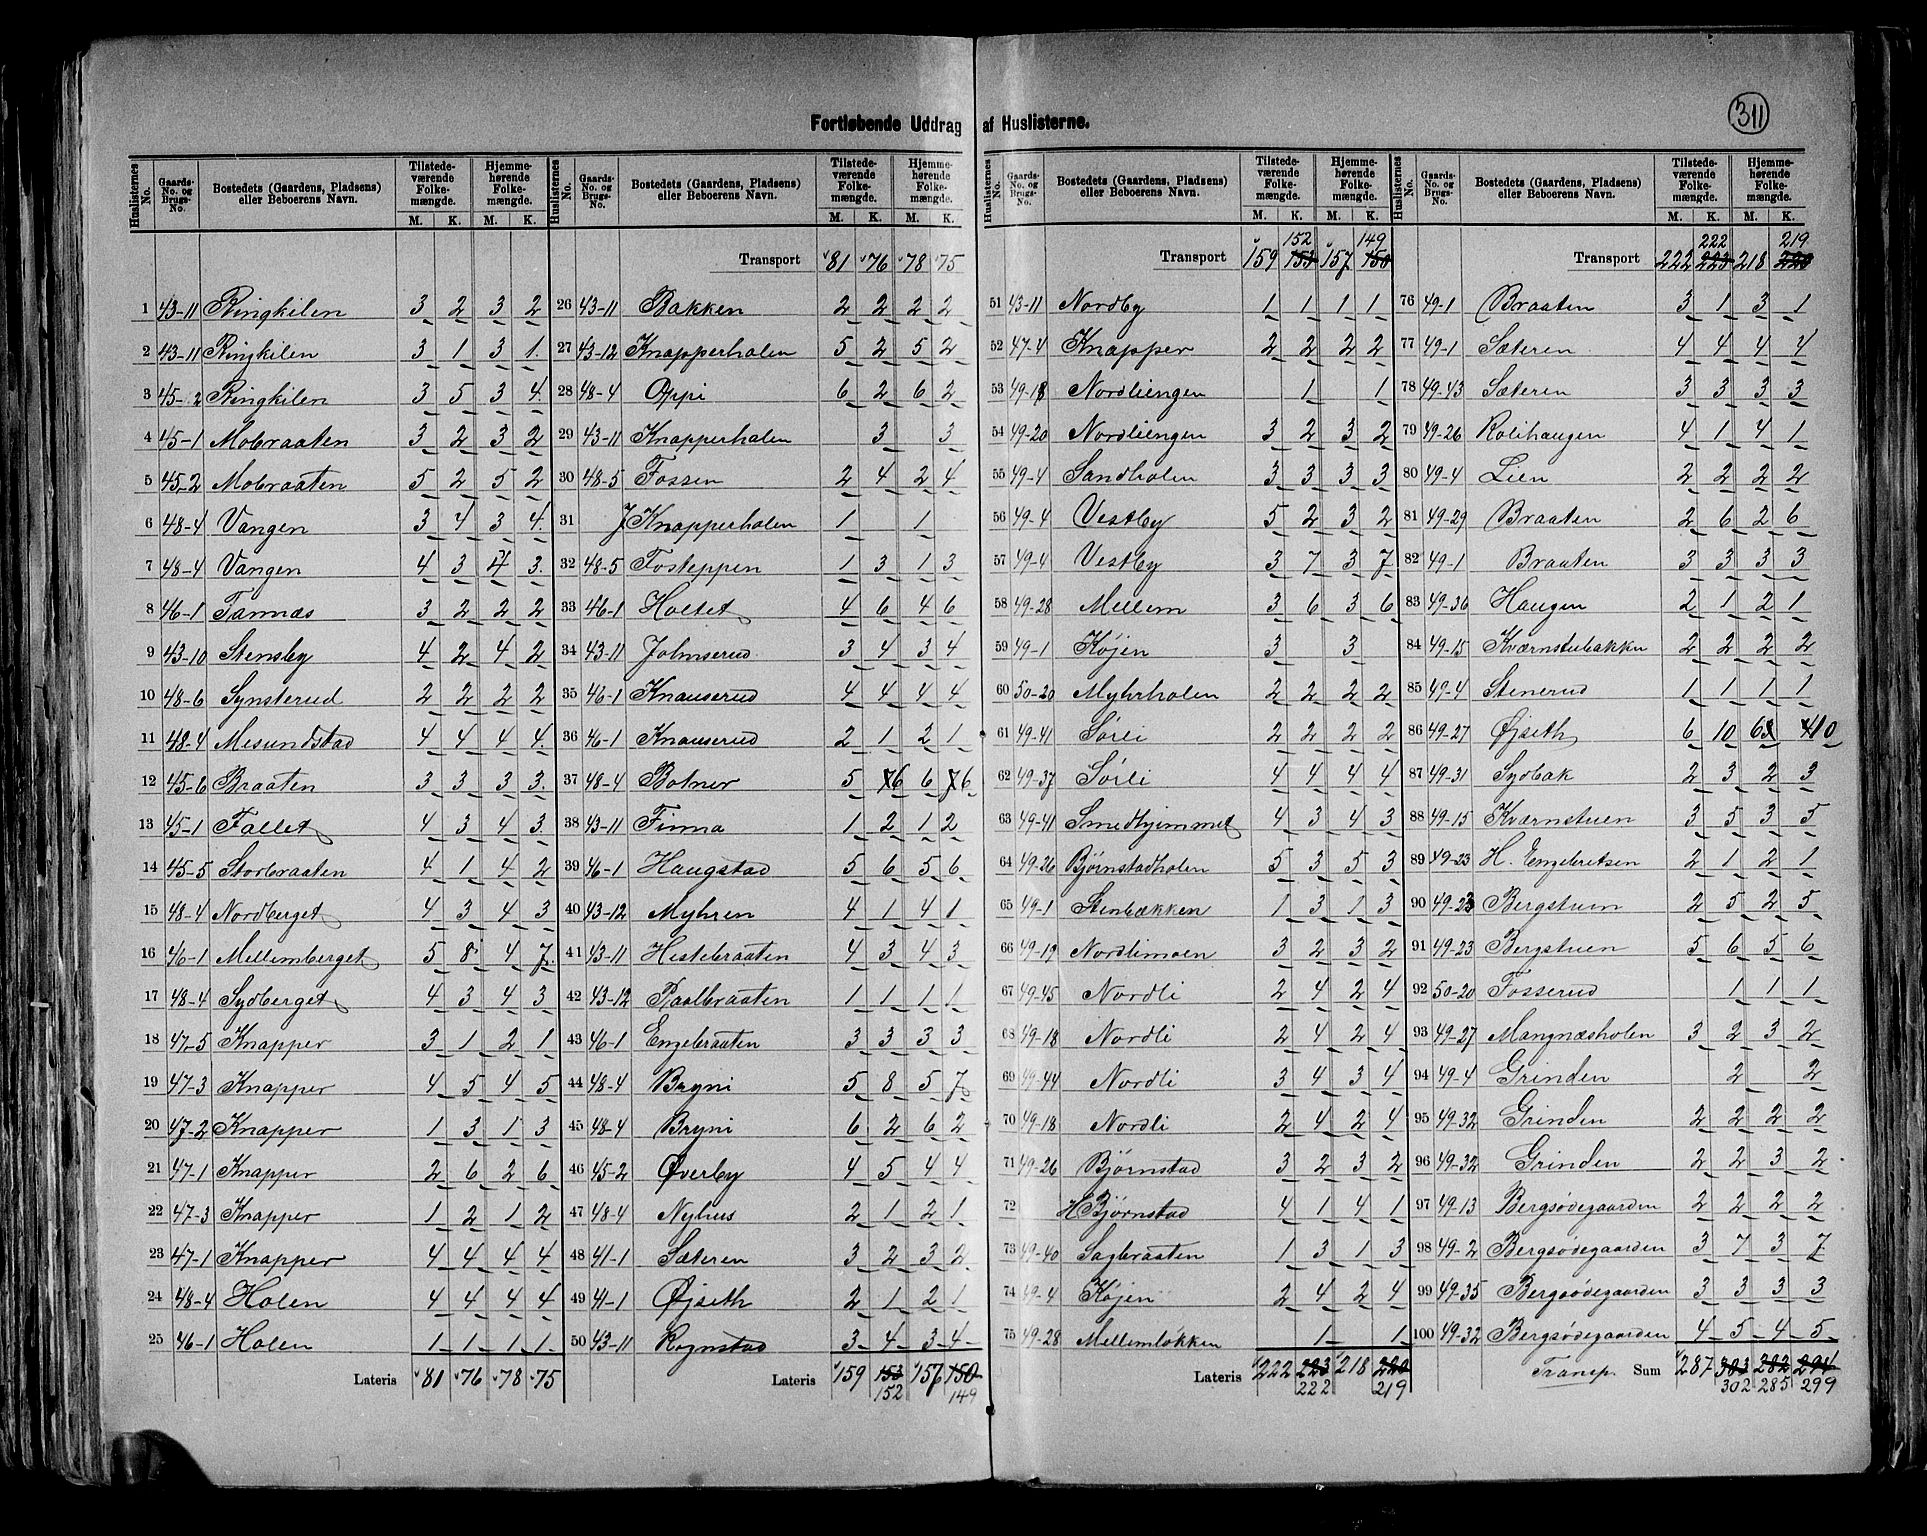 311
Fortløbende Uddrag af Huslisterne.
Huslisternes No. Gaards-No. og Brugs-No. Bostedets (Gaardens, Pladsens) eller Beboerens Navn. Tilstedeværende Folkemængde. M. K. Hjemmehørende Folkemængde. M. K.
1 43-11 Ringkilen 3 2 3 2
2 43-11 Ringkilen 3 1 3 1
3 45-2 Ringkilen 3 5 3 4
4 45-1 Mobraaten 3 2 3 2
5 45-2 Mobraaten 5 2 5 2
6 48-4 Vangen 3 4 3 4
7 48-4 Vangen 4 3 4 3
8 46-1 Tannæs 3 2 2 2
9 43-10 Stensby 4 2 4 2
10 48-6 Synsterud 2 2 2 2
11 48-4 Mesundstad 4 4 4 4
12 45-6 Braaten 3 3 3 3
13 45-1 Fallet 4 3 4 3
14 45-5 Storbraaten 4 1 4 2
15 48-4 Nordberget 4 3 4 3
16 46-1 Mellemberget 5 8 4 7
17 48-4 Sydberget 4 3 4 3
18 47-5 Knapper 3 1 2 1
19 47-3 Knapper 4 5 4 5
20 47-2 Knapper 1 3 1 3
21 47-1 Knapper 2 6 2 6
22 47-3 Knapper 1 2 1 2
23 47-1 Knapper 4 4 4 4
24 48-4 Holen 4 4 4 4
25 46-1 Holen 1 1 1 1
Lateris 81 76 78 75
Huslisternes No. Gaards-No. og Brugs-No. Bostedets (Gaardens, Pladsens) eller Beboerens Navn. Tilstedeværende Folkemængde. M. K. Hjemmehørende Folkemængde. M. K.
Transport 81 76 78 75
26 43-11 Bakken 2 2 2 2
27 43-12 Knapperholen 5 2 5 2
28 48-4 Oppi 6 2 6 2
29 43-11 Knapperholen 3 3
30 48-5 Fossen 2 4 2 4
31 J Knapperholen 1 1
32 48-5 Fosteppen 1 3 1 3
33 46-1 Holtet 4 6 4 6
34 43-11 Johnserud 3 4 3 4
35 46-1 Knauserud 4 4 4 4
36 46-1 Knauserud 2 1 2 1
37 48-4 Botner 5 7 6 6 7 6
38 43-11 Finna 1 2 1 2
39 46-1 Haugstad 5 6 5 6
40 43-12 Myhren 4 1 4 1
41 43-11 Hestebraaten 4 3 4 3
42 43-12 Paalbraaten 1 1 1 1
43 46-1 Engebraaten 3 3 3 3
44 48-4 Bryni 5 8 5 7
45 48-4 Bryni 6 2 6 2
46 45-2 Øverby 4 5 4 4
47 48-4 Nyhus 2 1 2 1
48 41-1 Sæteren 3 2 3 2
49 41-1 Øjseth 2 1 2 1
50 43-11 Rognstad 3 4 3 4
Lateris 159 153 157 150
152 149
Huslisternes No. Gaards-No. og Brugs-No. Bostedets (Gaardens, Pladsens) eller Beboerens Navn. Tilstedeværende Folkemængde. M. K. Hjemmehørende Folkemængde. M. K.
152 149
Transport 159 153 157 150
51 43-11 Nordby 1 1 1 1
52 47-4 Knapper 2 2 2 2
53 49-18 Nordliengen 1 1
54 49-20 Nordliengen 3 2 3 2
55 49-4 Sandholen 3 3 3 3
56 49-4 Vestby 5 2 3 2
57 49-4 Vestby 3 7 3 7
58 49-28 Mellem 3 6 3 6
59 49-1 Køjen 3 3
60 50-20 Myhrholen 2 2 2 2
61 49-41 Sørli 2 2 2 2
62 49-37 Sørli 4 4 4 4
63 49-41 Smedhjemmet 4 3 4 3
64 49-26 Bjørnstadholen 5 3 5 3
65 49-1 Stenbækken 1 3 1 3
66 49-19 Nordlimoen 3 2 3 2
67 49-45 Nordli 2 4 2 4
68 49-18 Nordli 2 4 2 4
69 49-44 Nordli 3 4 3 4
70 49-18 Nordli 2 4 2 4
71 49-26 Bjørnstad 3 2 3 2
72 H Bjørnstad 4 1 4 1
73 49-40 Sagbraaten 1 3 1 3
74 49-4 Køjen 2 4 2 4
75 49-28 Mellemløkken 1 1
Lateris 222 223 218 220
222 219
Huslisternes No. Gaards-No. og Brugs-No. Bostedets (Gaardens, Pladsens) eller Beboerens Navn. Tilstedeværende Folkemængde. M. K. Hjemmehørende Folkemængde. M. K.
222 219
Transport 222 223 218 220
76 49-1 Braaten 3 1 3 1
77 49-1 Sæteren 4 4 4 4
78 49-43 Sæteren 3 3 3 3
79 49-26 Rolihaugen 4 1 4 1
80 49-4 Lien 2 2 2 2
81 49-29 Braaten 2 6 2 6
82 49-1 Braaten 3 3 3 3
83 49-36 Haugen 2 1 2 1
84 49-15 Kværnstubakken 2 2 2 2
85 49-4 Stenerud 1 1 1 1
86 49-27 Øjseth 6 10 6 10
87 49-31 Sydbak 2 3 2 3
88 49-15 Kværnstuen 3 5 3 5
89 49-23 H. Engebretsen 2 1 2 1
90 49-23 Bergstuen 2 5 2 5
91 49-23 Bergstuen 5 6 5 6
92 50-20 Fosserud 1 1 1
93 49-27 Mangnæsholen 3 2 3 2
94 49-4 Grinden 2 2
95 49-32 Grinden 2 2 2 2
96 49-32 Grinden 2 2 3 2
97 49-13 Bergsødegaarden 2 2 2 2
98 49-2 Bergsødegaarden 3 7 3 7
99 49-35 Bergsødegaarden 3 3 3 3
100 49-32 Bergsødegaarden 4 5 4 5
Transp. Sum 287 303 282 294
302 285 299